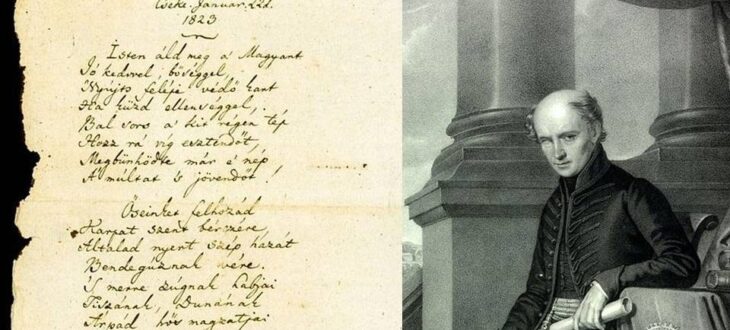 Cseke. Januar. 22d.
1823
Isten áld meg a' Magyart
Jó kedvvel, bőséggel,
Nyújts feléje védő kart
Ha küzd ellenséggel;
Bal sors a' kit régen tép
Hozz rá víg esztendőt,
Megbűnhődte már e' nép
A' múltat 's jövendőt!
Őseinket felhozád
Kárpát szent bérczére,
Általad nyert szép hazát
Bendegúznak vére.
'S merre zúgnak habjai
Tiszának, Dunának
Árpád hős magzatjai